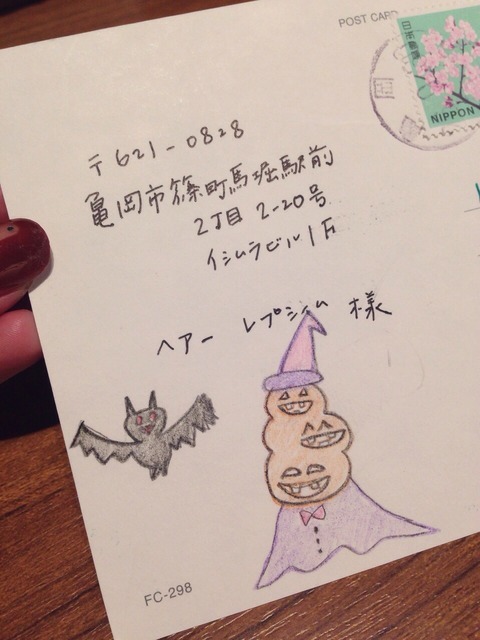 POST CARD
日本郵便
NIPPON
〒621-0828
亀岡市篠町馬堀駅前
2丁目 2-20号
イシムラビル1F
ヘアー レプシィム 様
FC-298